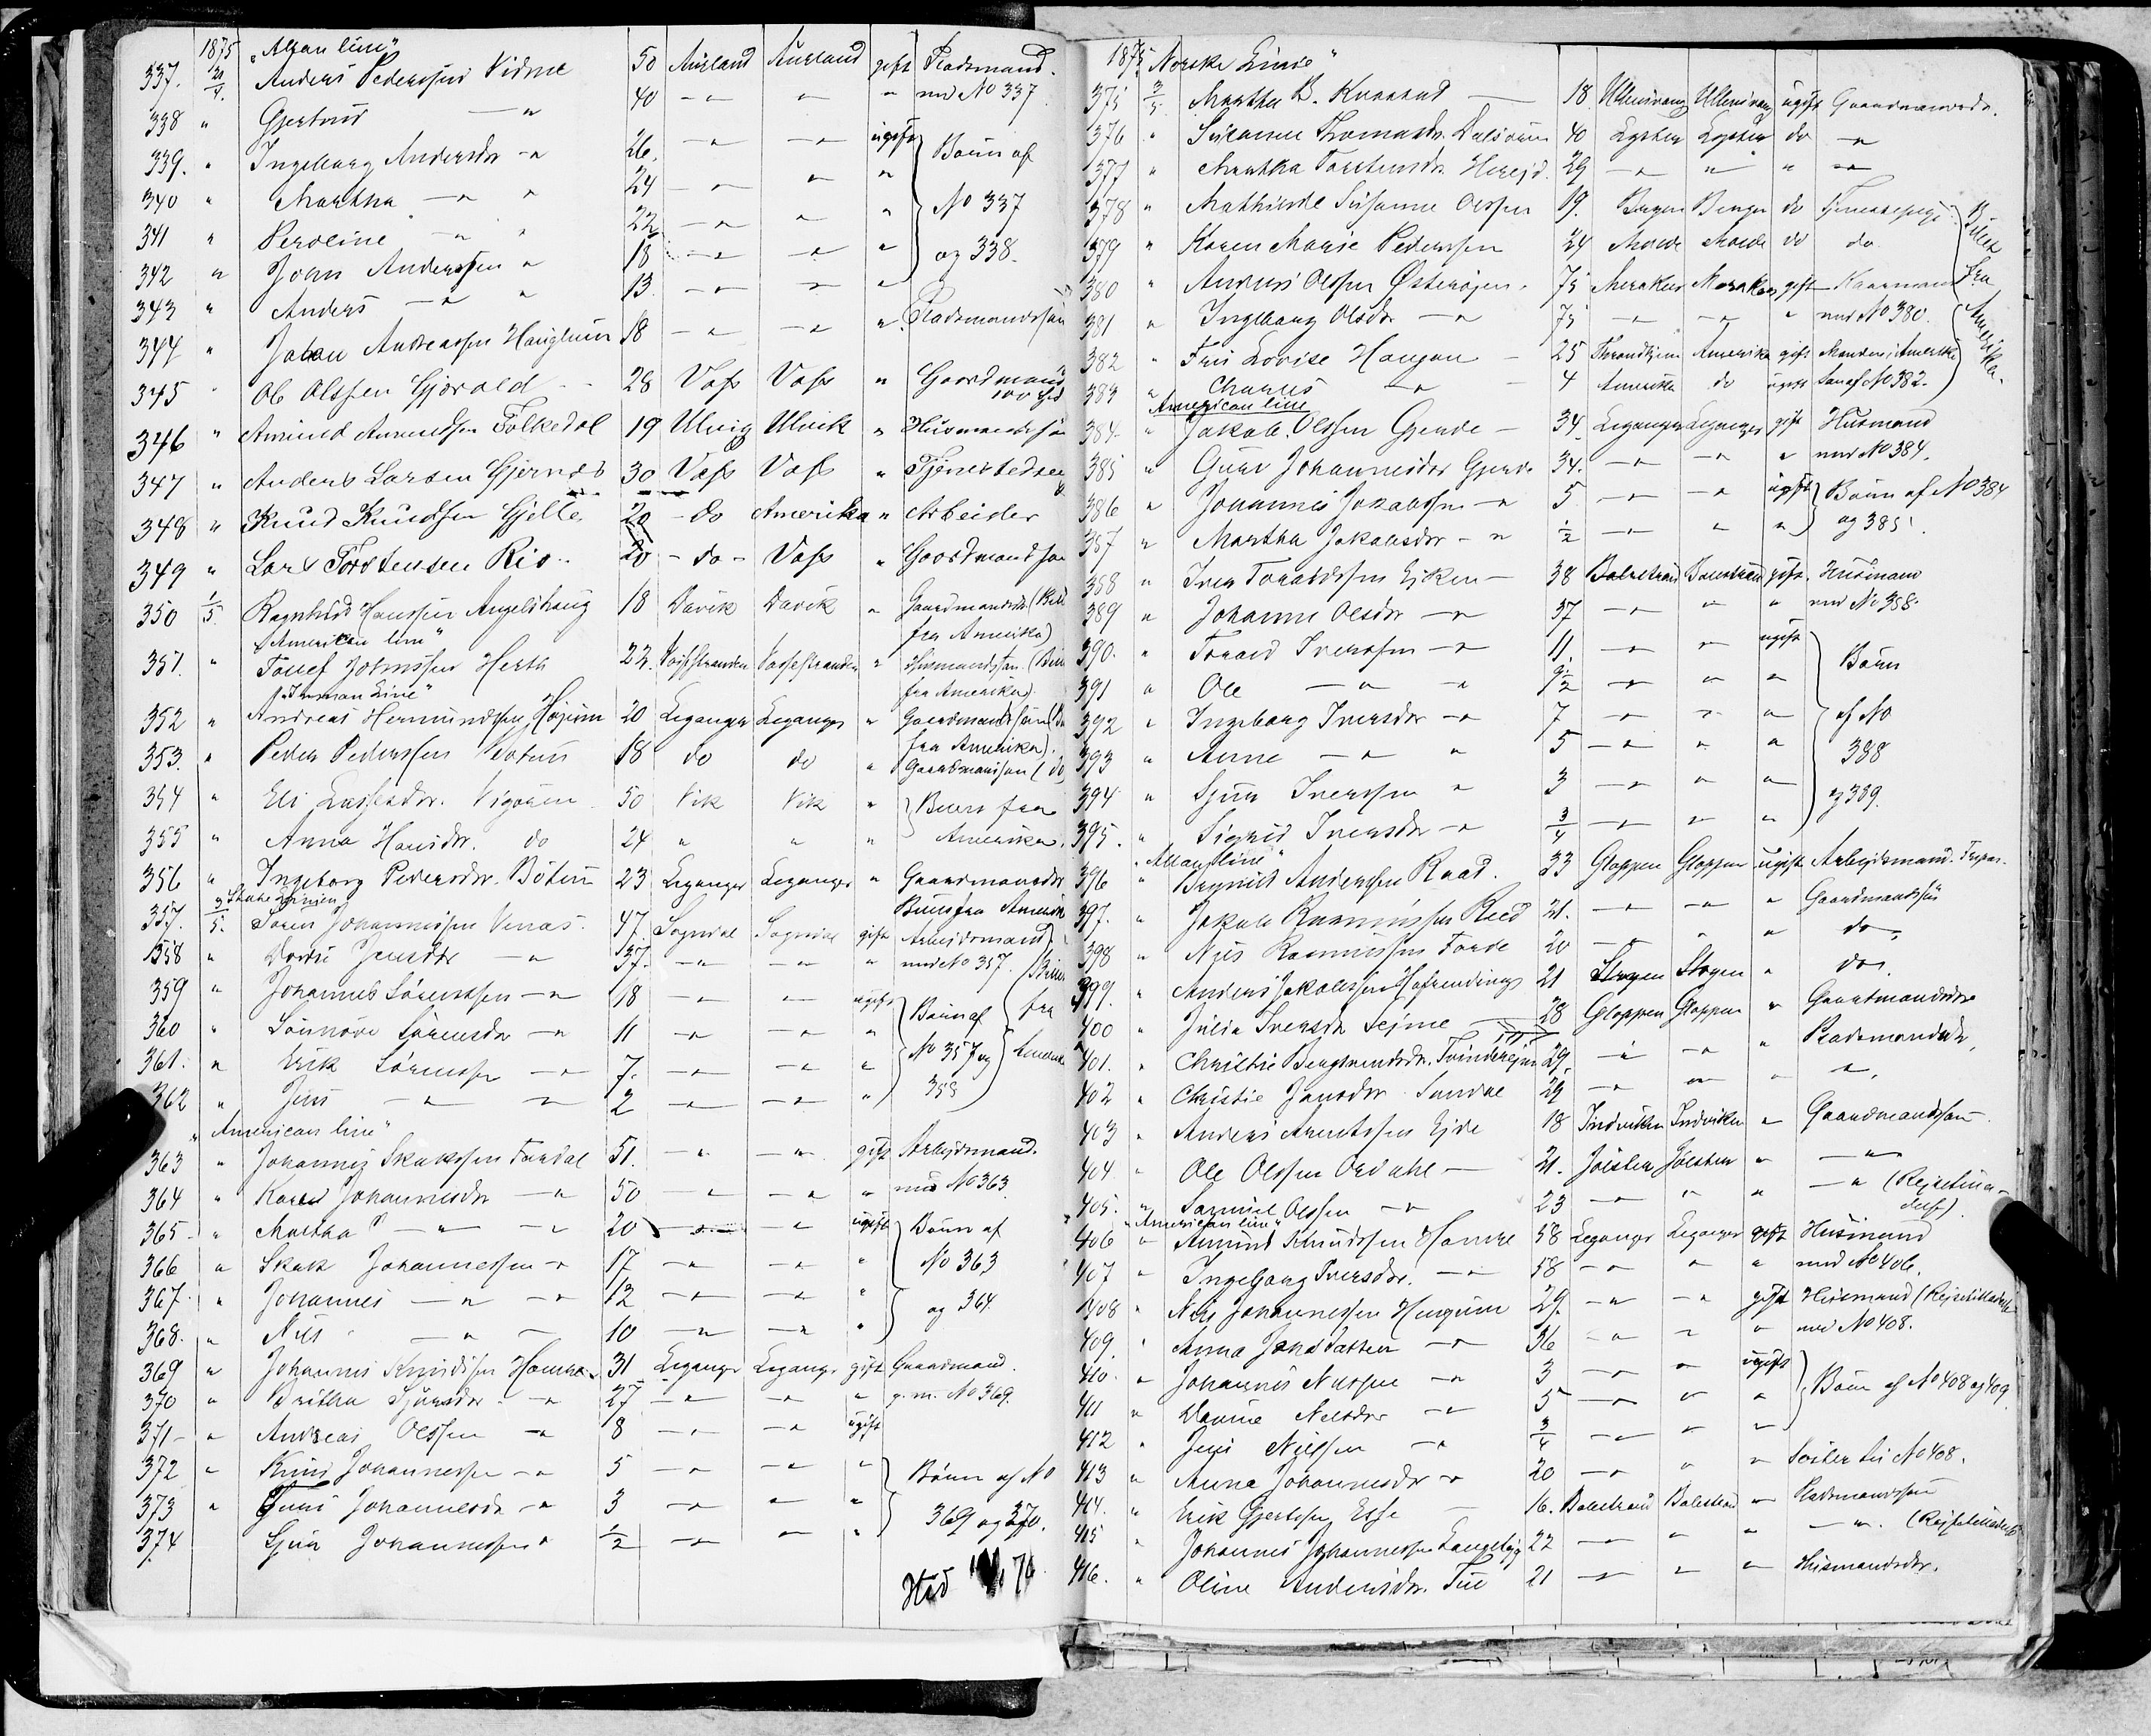 1875 "Allan line"
337. 20/4. Anders Pederssen Vidme 50 Aurland Aurland gift Pladsmand.
338 " Gjertrud — " 40 — " " " med No 337
339. " Ingeborg Andersdr — " 26. — " — " ugift } Børn af
340 " Martha — " " 24 — " " "
341 " Peroline — " " 22 — " " " No 337
342 " John Anderssen " 18 — " — " " og 338.
343 " Anders — " " 13 — " — "
344 " Johan Andreassen Hauglum 18 — " — " " Pladsmandssøn
345 " Ole Olssen Gjørald 28 Voss Voss " Gaardmand
346 " Amund Amundssen Folkedal 19 Ulvig Ulvik " Husmandssøn
347 " Anders Larsen Gjernes 30 Voss Voss " Tjenested
348 " Knud Knudssen Gjelle 20 - do Amerika " Arbeider
349 " Lars Torstensen Rio 20 - do - Voss " Gaardmandssøn
350 1/5. Ragnhild Hanssen Angelshaug 18 Davik Davik " Gaardmandsdr (Bill
"American line" fra Amerika)
351. " Josef Johnssen Herta 22. Vossestranden Vossestranden " Husmandssøn (Bill
"Inman Line" fra Amerika)
352 " Andreas Hermundssen Højum 20 Leganger Leganger " Gaardmandssøn (
fra Amerika).
353. " Peder Pederssen 18 do do " Gaardmandssøn (do
354 " Eli Lassesdr. 50 Vik Vik " } Billet fra
355 " Anna Hansdr. do 24 " " " Amerika
356 " Ingeborg Pedersdr. Bøtun 23 Leganger Leganger " Gaardmandsdr
State Linien Billet fra Amerik
357. 3/5. Søren Johannessen Venaas 47 Sogndal Sogndal gift Arbeidsmand
358 " Dordi Jensdtr — " 37. — " — " " med No 357. (Billet
359 " Johannes Sørenssen — " 18 — " — " ugift } Børn af { fra
360 " Sønnøve Sørensdr — " 11 — " — " "
361. " Erik Sørenssen — " 7. — " — " " No 357 og Amerik
362 " Jens — " — " 2 — " — " " 358
"American line"
363 " Johannes Skakssen Fardal 51. — " — " gift Arbeidsmand.
364 " Karen Johannesdr — " 50 — " — " " med No 363
365 - " Martha — " — " 20 — " — " ugift } Børn af
366 " Skak Johannessen — " 17 — " — " " No 363
367. " Johannes — " — " 12 — " — " "
368. " Nils — " — " 10 — " — " " og 364
369 " Johannes Knudssen Hamre 31 Leganger Leganger gift Gaardmand.
370 " Britha Sjursdr. — " 27 — " — " " g. m. No 369.
371 - " Andreas Olssen — " 8 — " — " ugift
372 " Knud Johannessen — " 5 — " — " " } Børn af No
373 " Johannesdr — " 3 — " — " "
374 " Sjur Johannessen " 1/2 — " — " " 369 og 370.
1875 "Norske Linie"
375 3/5 Martha B. — 18 Ullensvang Ullensvang ugift Gaardmandsdr.
376 " Susanne Thomasdr. Dalsøren 40 Lyster Lyster do — "
377 " Martha Torstensdr. 29 — " " — " " — "
378 " Mathilde Susanne Olssen 19. Bergen Bergen do Tjenestepige } Billet
379 " Karen Marie Pederssen 24 Molde Molde do do.
380 " Anders Olssen Østeraasen 75 Meraker Meraker gift Kaarmand fra
381 " Ingeborg Olsdr — " 75 — " — " " med No 380.
382 " Fru Lovise Haugan — 25 Throndhjem Amerika gift Manden i Amerika Amerika.
383 " Charles — " 4 Amerika do ugift Søn af No 382.
American line
384. " Jakob Olssen Gjerde — 34. Leganger Leganger gift Husmand
385 " Guri Johannesdr Gjerde 34. — " — " " med No 384.
386 " Johannes Jakobssen — " 5 — " — " ugift } Børn af No 384
387 " Martha Jakobsdr — " 1/2 — " " " og 385.
388 " Iver Toraldssen Ejken — 38 Balestrand Balestrand gift. Husmand
389 " Johanne Olsdr — " 37 — " " " med No 388.
390. " Torald Iverssen — " 11. — " — " ugift } Børn
391 " Ole — " — " 9 1/2 — " " "
392 " Ingeborg Iversdr — " 7 — " — " " af No
393 " Anne — " " 5 — " " " 388
394 " Sjur Iverssen " 3 — " " "
395. " Sigrid Iversdr — " 3/4 — " " " og 389.
"Allan line"
396 " Brynild Anderssen Raad. 33 Gloppen Gloppen ugift Arbejdsmand.
397. " Jakob Rasmussen Reed 21. — " — " " Gaardmandssøn
398 " Nils Rasmussen Førde 20 — " " " do.
399. " Anders Jakobssen 21 Skogen Skogen " do.
400 " Julia Iversdr Sejme 28 Gloppen Gloppen " Gaardmandsdr
401. " Christie Bengtsendsdr. 29. — " — " " Pladsmandsdr
402 " Christie Jansdr Sandal 29 — " — " " — ".
403 " Anders Arentssen Ejde 18 Indviken Indviken " Gaardmandssøn
404 " Ole Olssen Ordahl — 21. Jølster Jølster " — "
405. " Samuel Olssen — " 23 — " " " — " (Rejsetilla-
delse)
"American line"
406 " Amund Knudssen Hamre 58 Leganger Leganger gift Husmand
407 " Ingeborg Iversdr. — " 58 — " " " med No 406.
408 " Nils Johannessen Husum 29. — " — " gift Husmand (Rejsetilladelse
409. " Anna Jonsdatter — " 36 — " — " " med No 408.
410. " Johannes Nilssen — " 3 — " " ugift } Børn af No 408 og 409
411 " Nilsdr — " 5 — " " "
412 " Jens Nilssen — " 3/4 — " " "
413 " Anna Johannesdr — " 20 — " " " Søster til No 408.
414. " Erik Gjertssen Esse — 16. Balestrand Balestrand " Pladsmandssøn
415 " Johannes Johannessen 22 — " " " — ". (Rejsetilladelse
416. " Oline Andersdr. Tue 21 — " " " Husmandsdr.